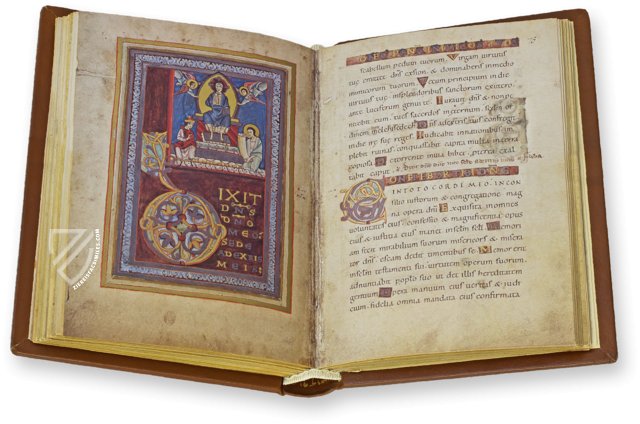 IXIT
DNS
DNO
MEO
SEDE
ADEXRIS
MEIS:
ZIEREIS FACSIMILES.COM
scabellum pedum tuorum. Virgam uirtutis
tuę emittet dns ex sion, & dominaberis in medio
inimicorum tuorum. Tecum principium in die
uirtutis tuę, in splendoribus sanctorum ex utero
ante luciferum genui te. Iurauit dns & non pe
nitebit eum, tu es sacerdos in aeternum, secundum or
dinem melchisedech. Dns a dextris tuis, confregit
in die irę suę reges. Iudicabit in nationibus im
plebit ruinas, conquassabit capita multa in terra
copiosa. De torrente in uia bibet, propterea exal
tabit caput
CONFITEBOR TIBI DNE
IN TOTO CORDE MEO, IN CON
silio iustorum & congregatione mag
na opera dni. Exquisita, in omnes
uoluntates eius, confessio & magnificentia opus
eius, & iustitia eius manet in sclm scli. Memori
am fecit mirabilium suorum misericors & misera
tor dns, escam dedit timentibus se. Memor erit
in sclm testamenti sui, uirtutem operum suorum,
adnuntiabit populo suo ut det illis hereditatem
gentium. Opera manuum eius ueritas & iudi
cium, fidelia omnia mandata eius confirmata